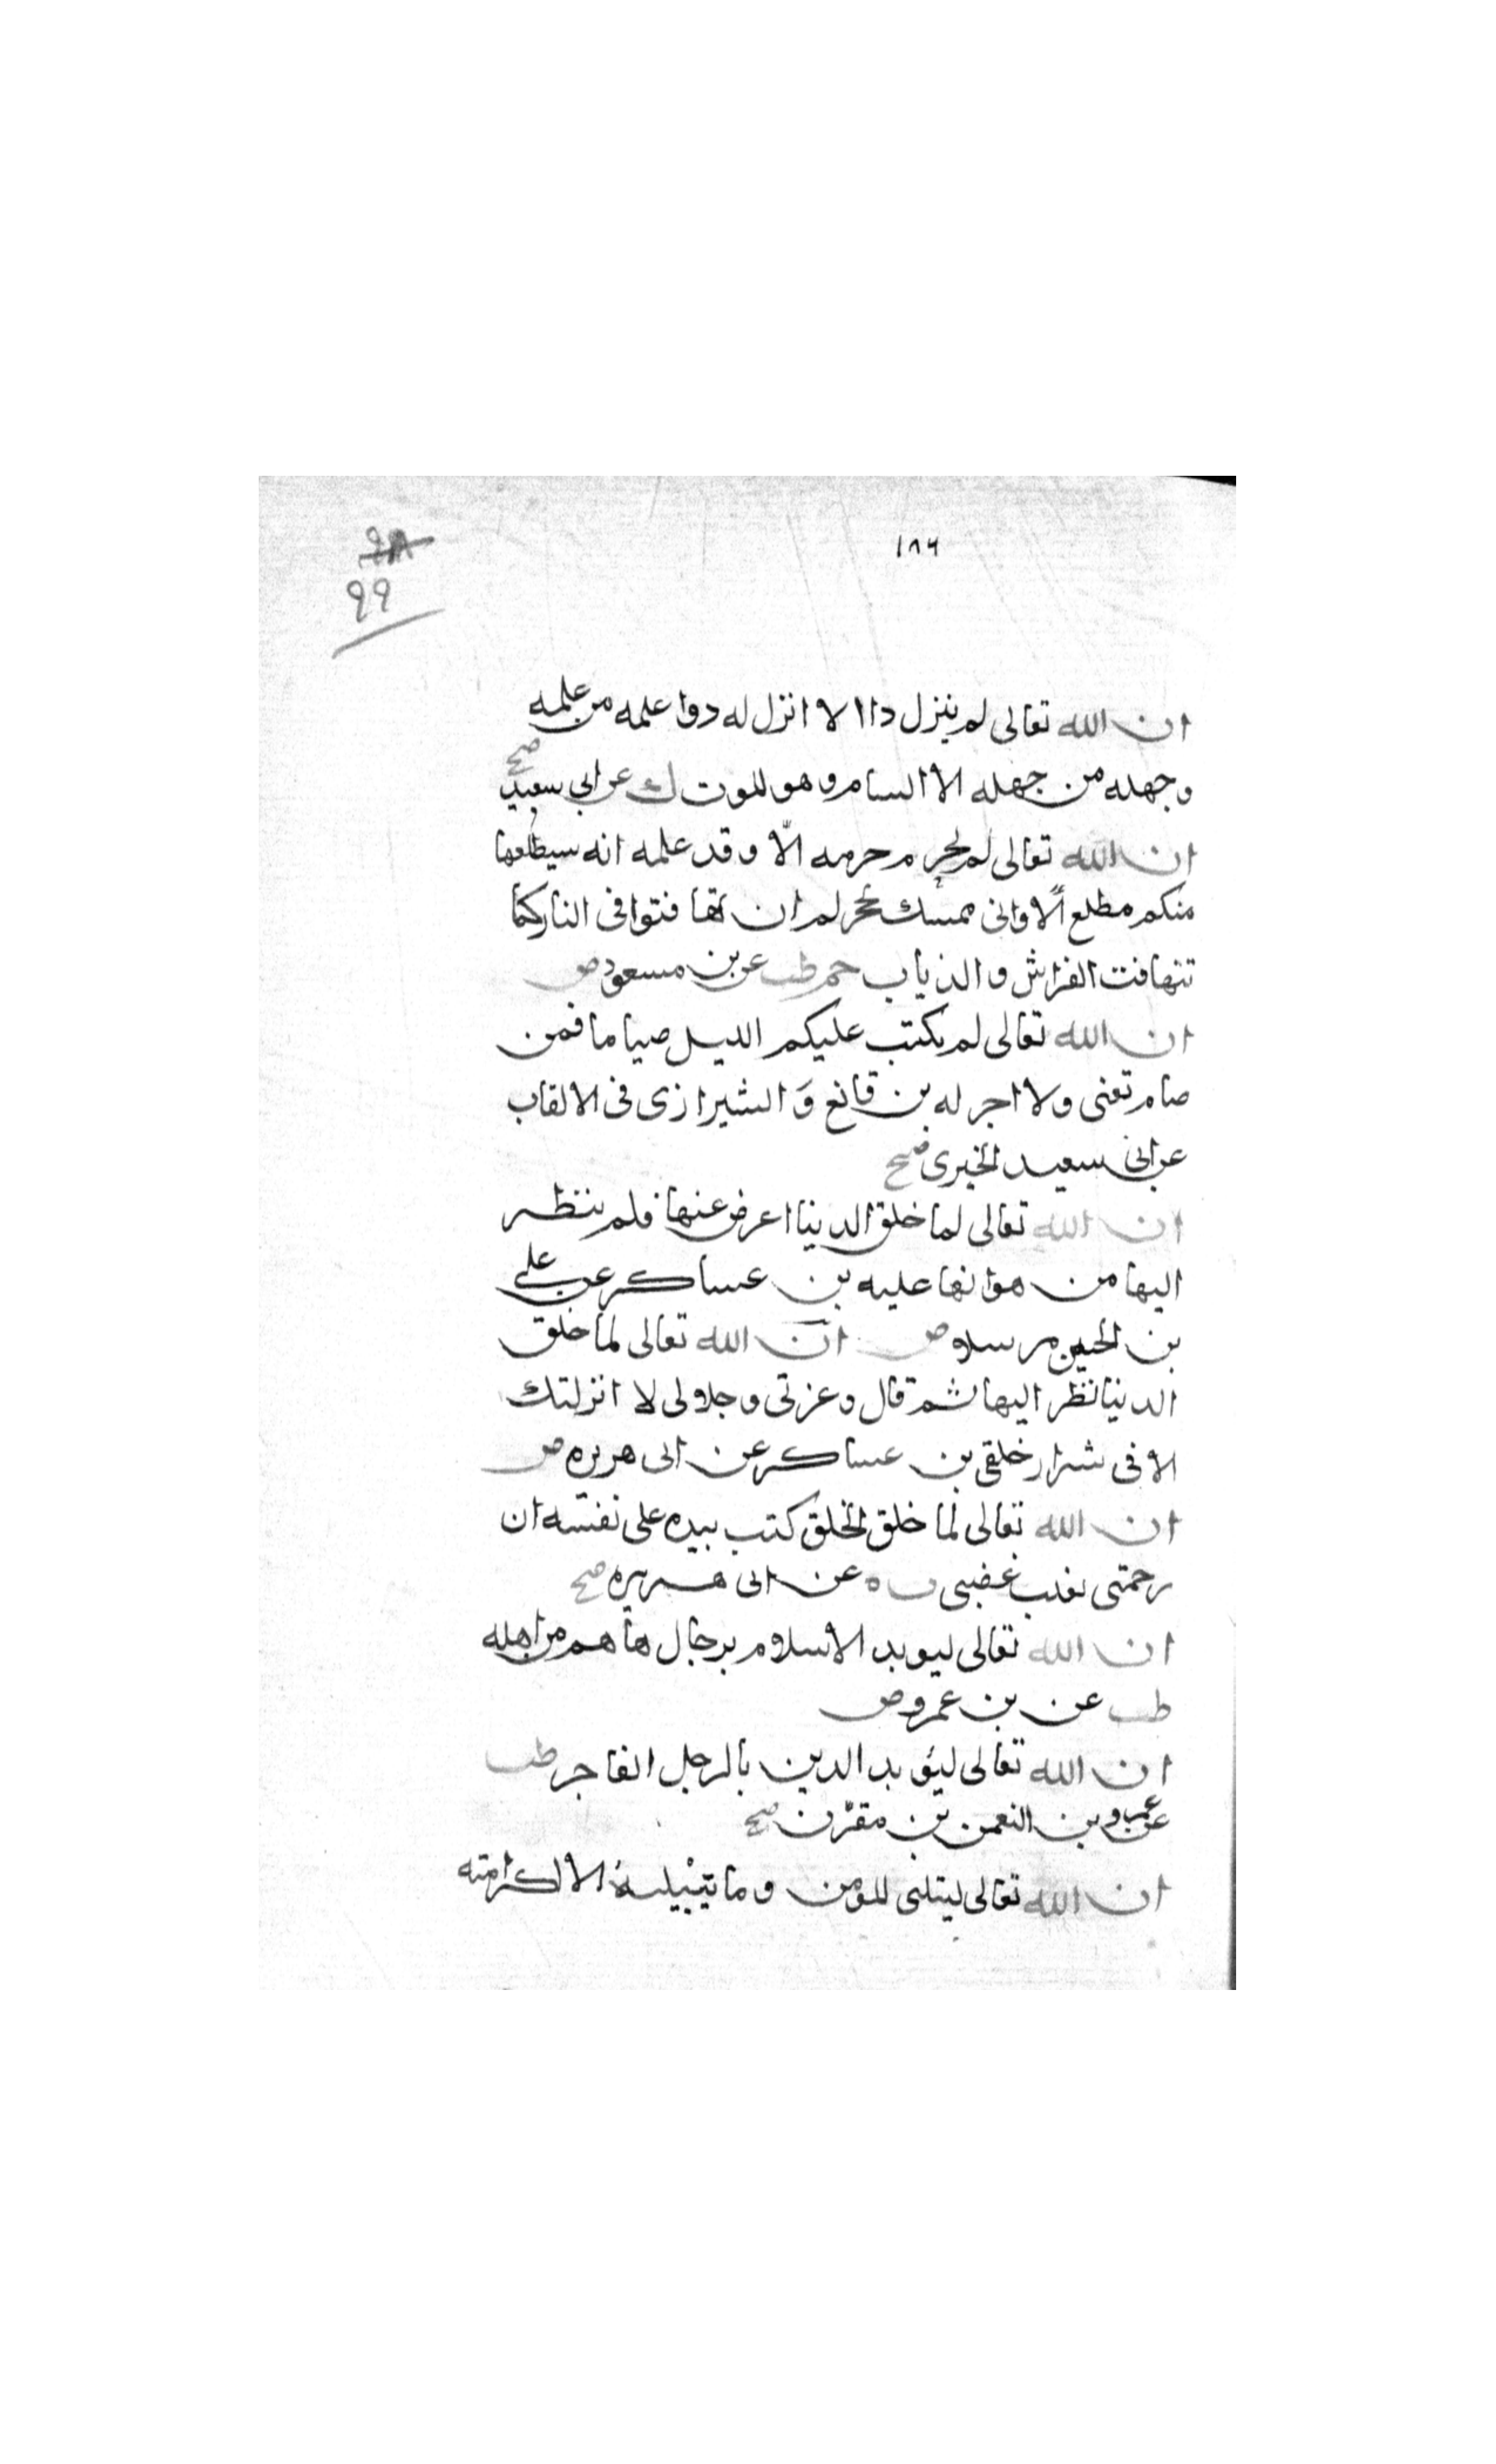 ١٨٦
٩٨
٩٩
ان الله تعالى لم ينزل داا الا انزل له دوا علمه من علمه
وجهله من جهله الا السام وهو الموت ك عن ابي سعيد صح
ان الله تعالى لم يحرم حرمه الّا وقد علمه انه سيطلعها
منكم مطلع ألا واني ممسك بحجركم ان تهافتوا في النار كما
تتهافت الفراش والذباب حم طب عن بن مسعود ض
ان الله تعالى لم يكتب عليكم الليل صياما فمن
صام تعنى ولا اجر له بن قانع وَ الشيرازى فى الالقاب
عن ابى سعيد الخيرى صح
ان الله تعالى لما خلق الدنيا اعرض عنها فلم ينظر
اليها من هوانها عليه بن عساكر عن على
بن الحسين مرسلا ض ان الله تعالى لما خلق
الدنيا نظر اليها ثم قال وعزتى وجلالى لا انزلتك
الا فى شرار خلقى بن عساكر عن ابى هريره ض
ان الله تعالى لما خلق الخلق كتب بيده على نفسه ان
رحمتى تغلب غضبى ت ه عن ابى هريره صح
ان الله تعالى ليويد الاسلام برجال ما هم من اهله
طب عن بن عمرو ض
ان الله تعالى ليؤيد الدين بالرجل الفاجر طب
عن عمرو بن النعمن بن مقرّن صح
ان الله تعالى ليبتلى المؤمن وما يبتليه الا لكرامته